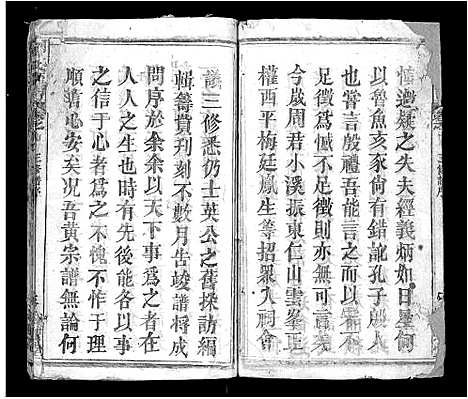 懂遊疑之失夫經義炳如日星何
以魯魚亥豕尚有錯訛孔子殷人
也嘗言殷禮吾能言之而以杞不
足徵為憾不則吾能言可言歲
今歲周君小溪振東仁山雲峯正
權西平梅廷鳳生等招眾入祠會
議三修悉仍士英公之舊採訪編
輯籌貲刊刻不數月告竣譜將成
問序於余余以天下事為之者
人人之生也時有先後皆以事
之信于心者為之不愧不怍于理
順情心安矣況吾黃宗譜無論何